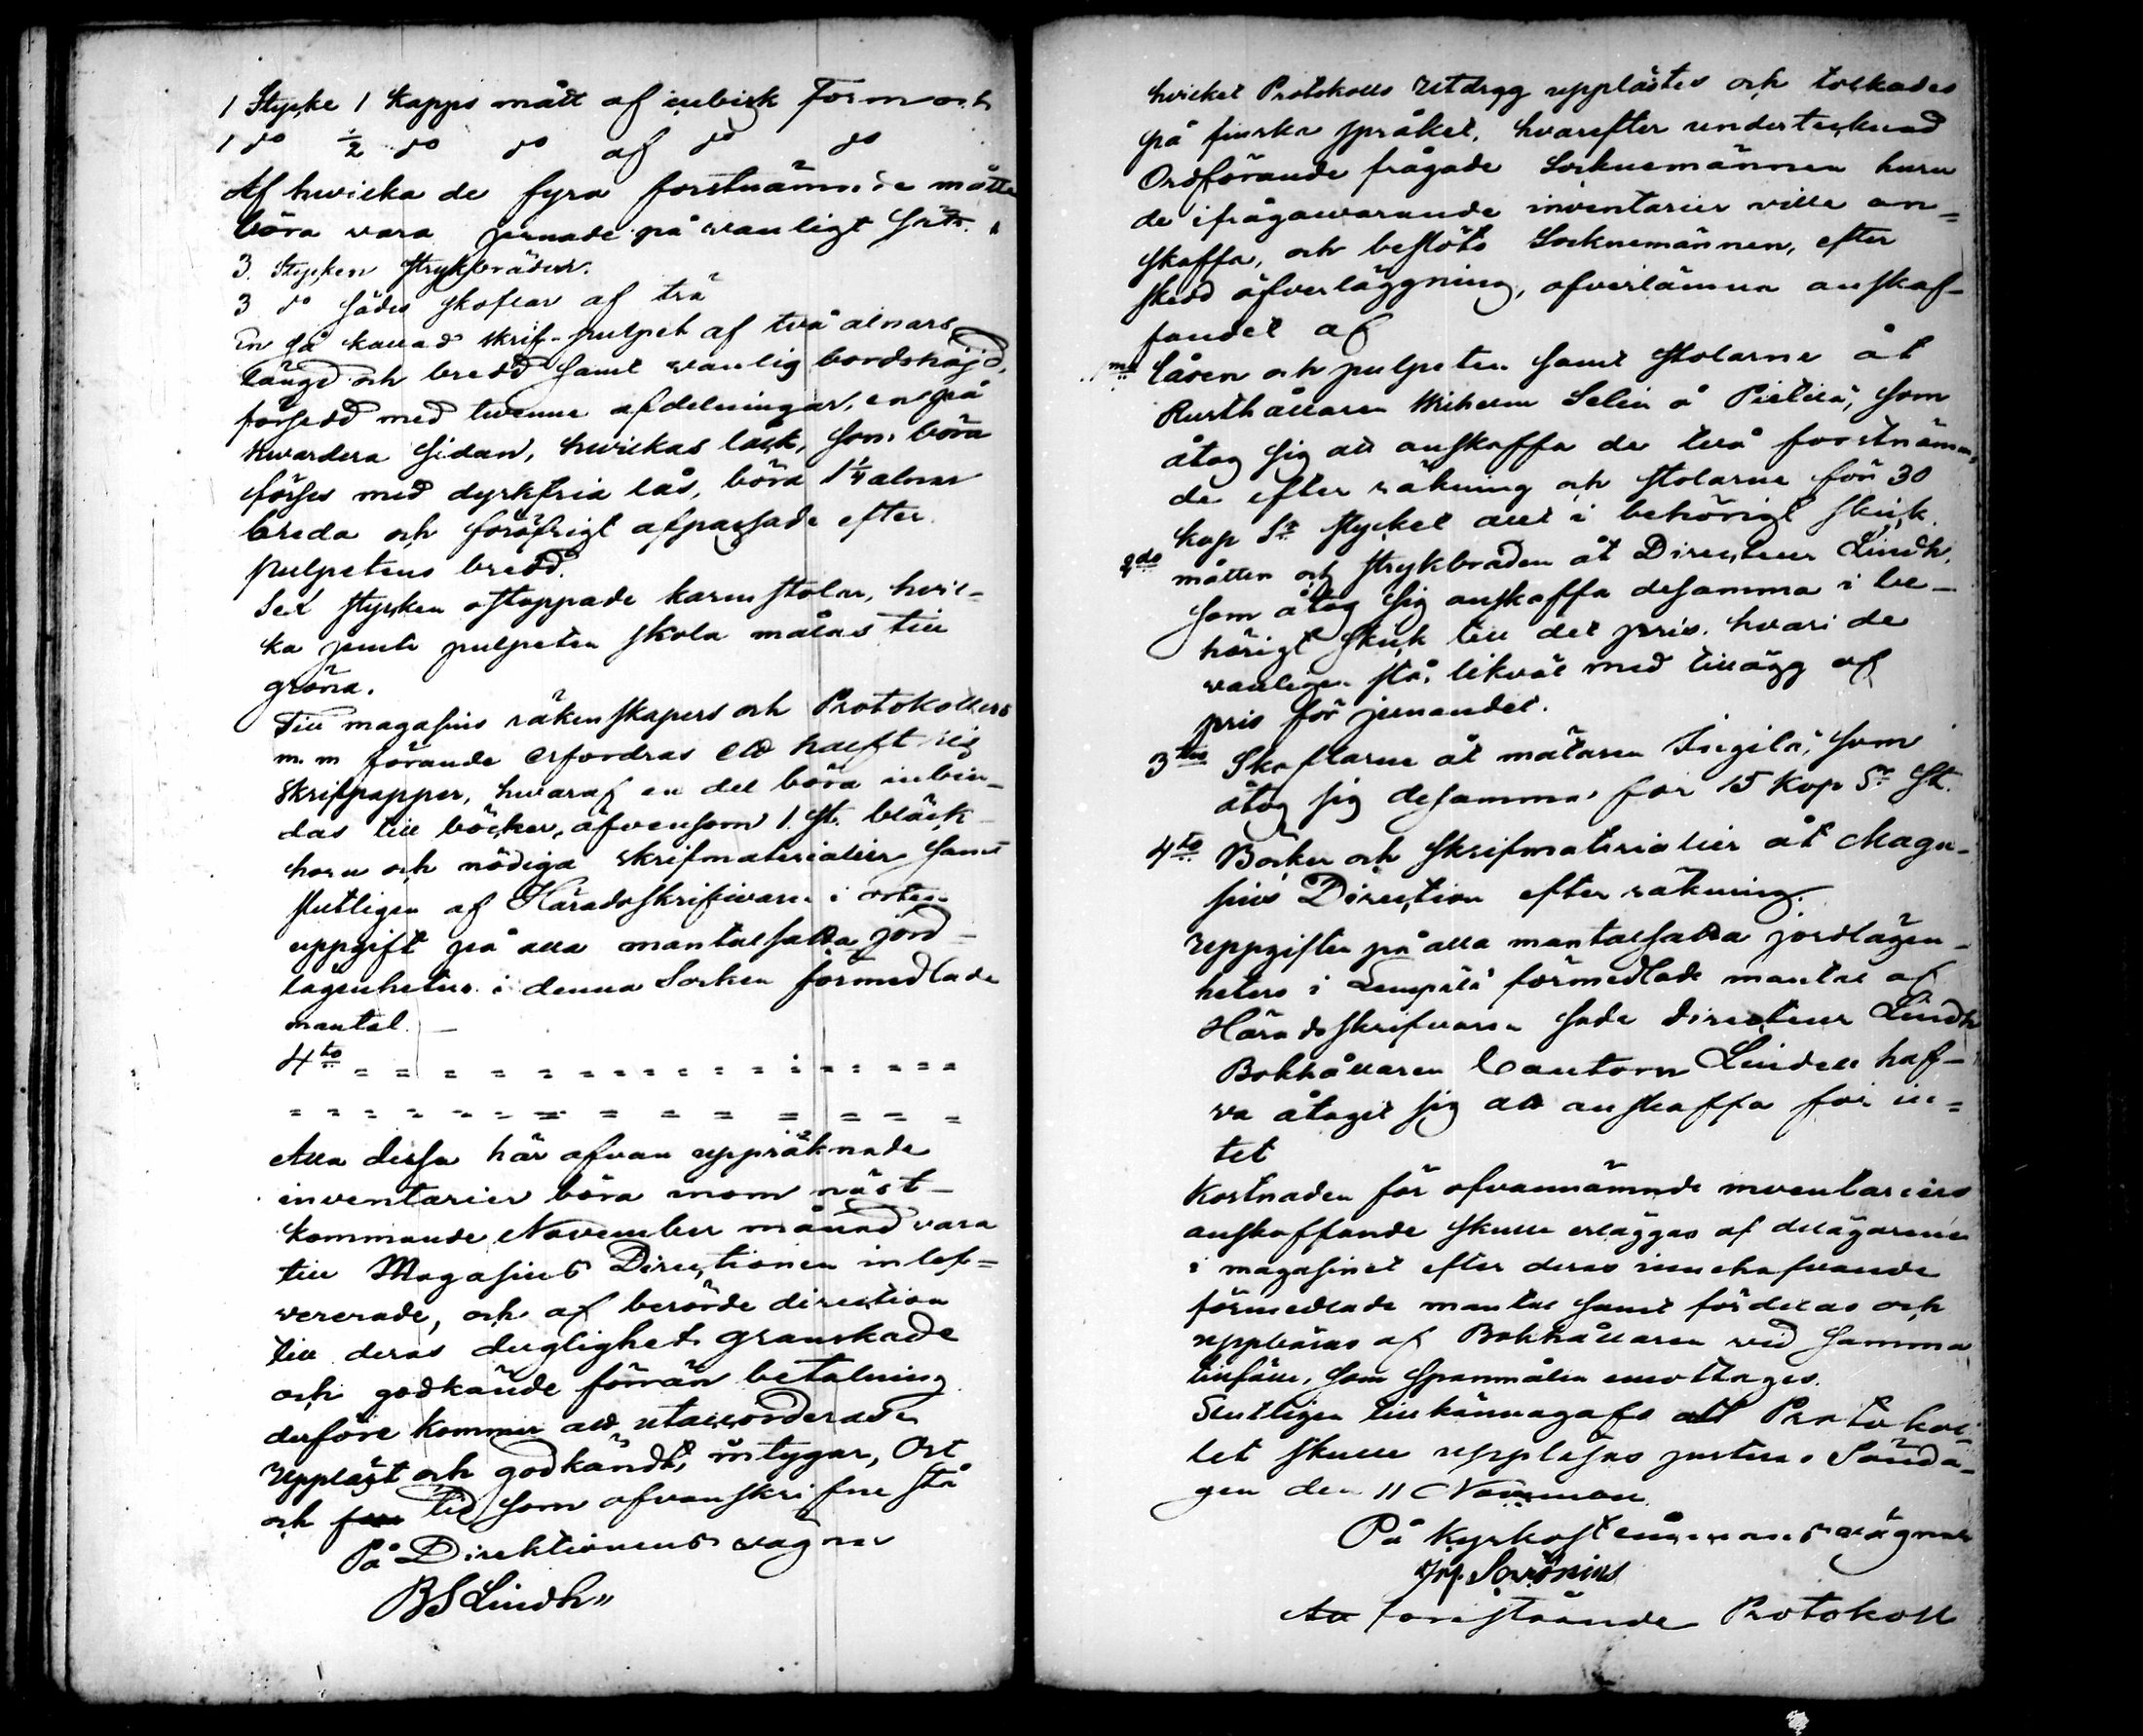 1 Stycke 1 Kapps mått af cubisk Form och
1 do ½ do do af do do
Af hwilka de fyra förstnämnde måtte
böra vara jernade på wanligt sätt.
3. Stycken strykbräden.
3 do sädes skoflar af trä
En så kallad skrif-pulpet af två alnars
längd och bredd samt wanlig bordshöjd,
försedd med twenne afdelningar, en på
hwardera sidan, hwilkas låck, som böra
förses med dyrkfria lås, böra 1¼ alnar
breda och föröfrigt afpassade efter
pulpetens bredd.
Sex stycken ostoppade karmstolar, hvil-
ka jemte pulpeten skola målas till
gröna.
Till magasins räkenskapers och Protokollers
m.m förande erfordras ett halft ris
skrifpapper, hwaraf en del böra inbin-
das till böcker, äfvensom 1. st. bläck
horn och nödiga skrifmaterialier samt
slutligen af Häradsskrifvaren i orten
uppgift på alla mantalsatta jord-
lägenheters i denna Socken förmedlade
mantal. —
4to = = = = = = = = = = = = =
= = = = = = = = = = = = =
Alla dessa här ofvan uppräknade
inventarier böra inom näst-
kommande November månad vara
till Magasins Directionen inlef=
vererade, och af berörde direction
till deras duglighet granskade
och godkände förrän betalning
derföre kommer att utanordnas.
Uppläst och godkändt, intygar, Ort
och tid som ofvanskrifne stå
På Direktionens wägnar
BS Lindh"
hvilket Protokolls Utdrag upplästes och tolkades
på finska språket, hvarefter undertecknad
Ordförande frågade Socknemännen huru
de ifrågawarande inventarier ville an=
skaffa, och beslöto Socknemännen, efter
skedd öfverläggning, öfverlämna anskaf-
fandet af
1mo Låren och pulpeten samt stolarne åt
Rusthållaren Wilhelm Selin å Pietilä, som
åtog sig att anskaffa de två förstnämn-
de efter räkning och stolarne för 30
kop Sr stycket allt i behörigt skick.
2do måtten och strykbräden åt Directeur Lindh,
som åtog sig anskaffa desamma i be-
hörigt skick till det pris. hvari de
vanligen stå, likväl med tillägg af
pris för jernandet.
3tio Skoflarne åt mätaren Sigilä, som
åtog sig desamma för 15 Kop Sr St.
4to Böcker och skrifmaterialier åt Maga-
sins Direction efter räkning.
Uppgiften på alla mantalsatta jordlägen-
heters i Lempälä förmedlade mantal af
Häradsskrifvaren sade directeur Lindh
Bokhållaren Cantorn Lindell haf-
va åtagit sig att anskaffa för in=
tet
Kostnaden för ofvannämnde inventariers
anskaffande skulle erläggas af delägarene
i magasinet efter deras innehafvande
förmedlade mantal samt fördelas och
uppbäras af Bokhållaren vid samma
tillfälle, som spannmålen emottages.
Slutligen tillkännagafs att Protokol-
let skulle uppläsas justeras Sönda-
gen den 11 November.
På Kyrkostämmans wägnar
Jos. Servonius
Att förestående Protokoll